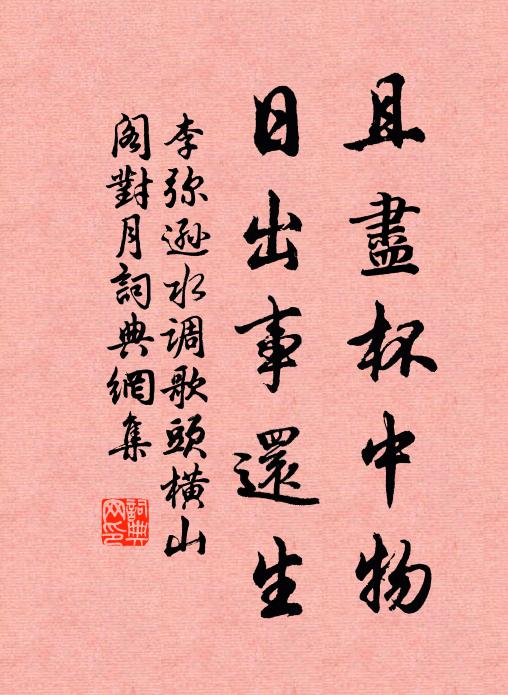 且盡杯中物
日出事還生
李弥遜水调歌頭橫山
阁對月詞典網集
詞典網印